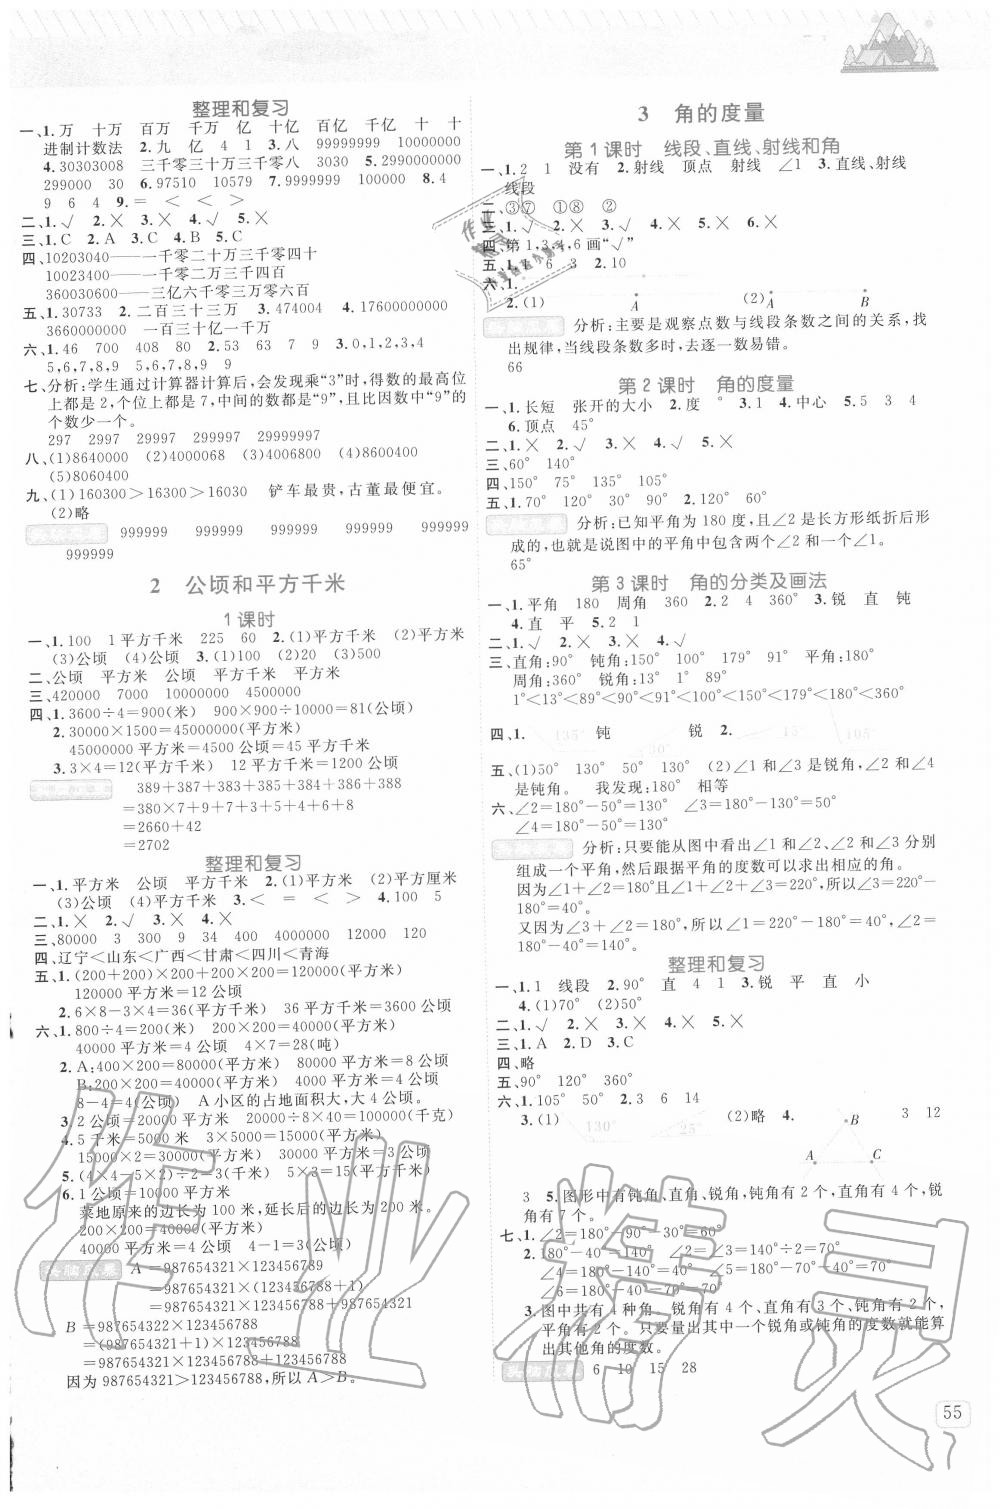 整理和复习
一、1.万 十万 百万 千万 亿 十亿 百亿 千亿 十 十
进制计数法 2.九 亿 4 1 3.八 99999999 10000000
4.30303008 三千零三十万三千零八 3030 5.2990000000
299000 30 6.97510 10579 7.9999999 100000 8.4
9 6 4 9.= < > <
二、1.√ 2.× 3.× 4.√ 5.×
三、1.C 2.A 3.C 4.B 5.C
四、10203040——一千零二十万三千零四十
10023400——一千零二万三千四百
360030600——三亿六千零三万零六百
五、1.30733 2.二百三十三万 3.474004 4.17600000000
3660000000 一百三十亿一千万
六、1.46 700 408 80 2.53 63 7 9 3.0,1,2,3,4
5,6,7,8,9 5,6,7,8,9 9
七、分析:学生通过计算器计算后,会发现乘“3”时,得数的最高位
上都是2,个位上都是7,中间的数都是“9”,且比因数中“9”的
个数少一个。
297 2997 29997 299997 29999997
八、(1)8640000 (2)4000068 (3)4006800 (4)8600400
(5)8060400
九、(1)160300>16300>16030 铲车最贵,古董最便宜。
(2)略
999999 999999 999999 999999 999999
999999
2 公顷和平方千米
1课时
一、1.100 1平方千米 225 60 2.(1)平方千米 (2)平方米
(3)公顷 (4)公顷 3.(1)100 (2)20 (3)500
二、公顷 平方米 公顷 平方千米 平方米
三、420000 7000 10000000 4500000
四、1.3600÷4=900(米) 900×900÷10000=81(公顷)
2.30000×1500=45000000(平方米)
45000000平方米=4500公顷=45平方千米
3.3×4=12(平方千米) 12平方千米=1200公顷
389+387+383+384+386+388
=380×7+9+7+3+5+4+6+8
=2660+42
=2702
整理和复习
一、1.平方米 公顷 平方千米 2.(1)平方米 (2)平方厘米
(3)公顷 (4)平方千米 3.< = < > 4.100 5
二、1.× 2.√ 3.× 4.×
三、80000 3 300 9 34 400 4000000 12000 120
四、辽宁<山东<广西<甘肃<四川<青海
五、1.(200+200)×200+200×200=120000(平方米)
120000平方米=12公顷
2.6×8-3×4=36(平方千米) 36平方千米=3600公顷
六、1.800÷4=200(米) 200×200=40000(平方米)
40000平方米=4公顷 4×7=28(吨)
2.A:400×200=80000(平方米) 80000平方米=8公顷
B:200×200=40000(平方米) 4000平方米=4公顷
8-4=4(公顷) A小区的占地面积大,大4公顷。
3.2公顷=20000平方米 20000÷8×40=100000(千克)
4.5千米=5000米 5000×3=15000(平方米)
15000×2=30000(平方米) 30000平方米=3公顷
5.(4×4-5×2)÷2=3(千米) 5×3=15(平方千米)
6.1公顷=10000平方米
菜地原来的边长为100米,延长后的边长为200米。
200×200=40000(平方米)
40000平方米=4公顷 4-1=3(公顷)
头脑风暴 A=987654321×123456789
=987654321×(123456788+1)
=987654321×123456788+987654321
B=987654322×123456788
=(987654321+1)×123456788
=987654321×123456788+123456788
因为987654321>123456788,所以A>B。
3 角的度量
第1课时 线段、直线、射线和角
一、1.2 1 没有 2.射线 顶点 射线 ∠1 3.直线、射线
线段
二、③⑦ ①⑧ ②
三、1.× 2.× 3.√ 4.× 5.×
四、第1,3,4,6画“√”
五、1. 6 3 2.10
六、1.
2.(1) A (2) A B
分析:主要是观察点数与线段条数之间的关系,找
出规律,当线段条数多时,去逐一数易错。
66
第2课时 角的度量
一、1.长短 张开的大小 2.度 ° 3.1 4.中心 5.5 3 4
6.顶点 45°
二、1.× 2.√ 3.× 4.√ 5.×
三、60° 140°
四、150° 75° 135° 105°
五、1.70° 120° 30° 90° 2.120° 60°
分析:已知平角为180度,且∠2是长方形纸折后形
成的,也就是说图中的平角中包含两个∠2和一个∠1。
65°
第3课时 角的分类及画法
一、1.平角 180 周角 360 2.2 4 3.锐 直 钝
4.直 平 5.2 1
二、1.√ 2.× 3.× 4.×
三、直角:90° 钝角:150° 100° 179° 91° 平角:180°
周角:360° 锐角:13° 1° 89°
1°<13°<89°<90°<91°<100°<150°<179°<180°<360°
四、1. 135° 钝 30° 锐 2. 15° 105°
五、(1)50° 130° 50° 130° (2)∠1和∠3是锐角,∠2和∠4
是钝角。 我发现:180° 相等
六、∠2=180°-50°=130° ∠3=180°-130°=50°
∠4=180°-50°=130°
分析:只要能从图中看出∠1和∠2、∠2和∠3分别
组成一个平角,然后跟据平角的度数可以求出相应的角。
因为∠1+∠2=180°且∠1+∠2+∠3=220°,所以∠3=220°-
180°=40°。
又因为∠3+∠2=180°,所以∠1=220°-180°=40°,∠2=
180°-40°=140°。
整理和复习
一、1.1 线段 2.90° 直 4 1 3.锐 平 直 小
4.(1)70° (2)50°
二、1.√ 2.× 3.× 4.× 5.×
三、1.A 2.D 3.C
四、略
五、90° 120° 360°
六、1.105° 50° 2.3 6 14
3.(1) 130° 25° (2)略 4. B A C 3 12
3 5.图形中有钝角、直角、锐角,钝角有2个,直角有4个,锐
角有7个。
七、1.∠2=180°-90°-30°=60°
2.180°-40°=140° ∠3=∠5=140°÷2=70°
∠4=180°-40°-70°=70°
∠6=180°-40°-70°=70°
3.图中共有4种角。锐角有4个、直角有3个、钝角有2个,
平角有2个。只要量出其中一个锐角或钝角的度数就能算
出其他角的度数。
头脑风暴 6 10 15 28
55
作业精灵